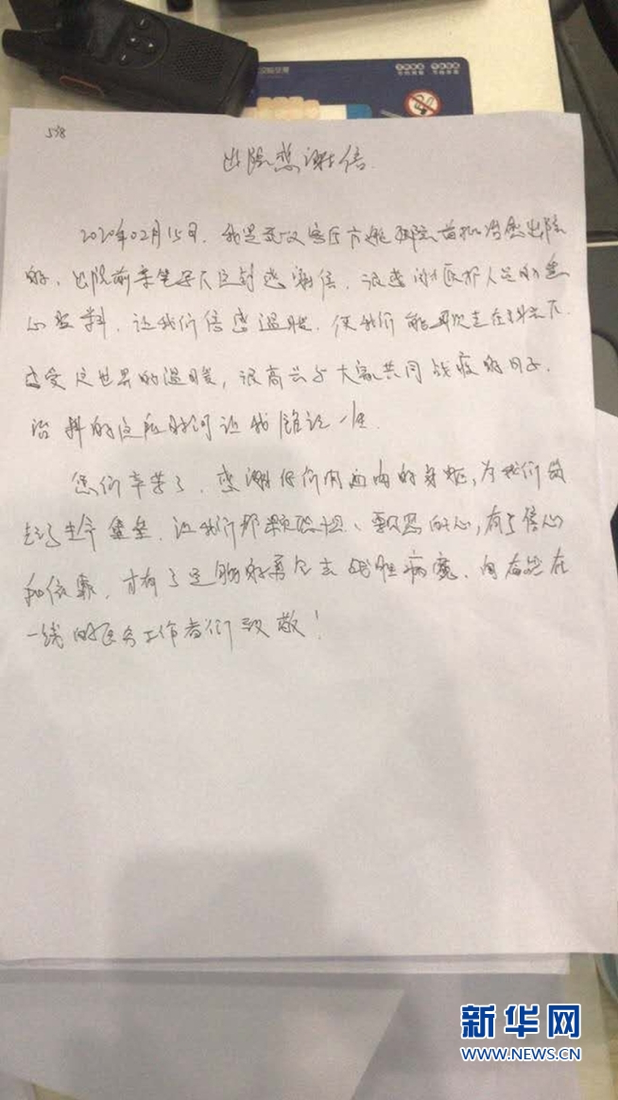 538
出院感谢信
2020年02月15日。我是武汉客厅方舱医院首批治愈出院
的。出院前亲笔写下这封感谢信。很感谢医护人员的悉
心照料。让我们倍感温暖。使我们能再次走在阳光下
感受这世界的温暖，很高兴与大家共同战疫的日子。
治料的这段时间让我铭记一生。
您们辛苦了。感谢你们的身躯，为我们筑
起了生命堡垒。让我们那颗恐惧、的心，有了信心
和依靠，才有了足够的勇气去战胜病魔。向奋战在
一线的医务工作者们致敬！
新华网
WWW.NEWS.CN